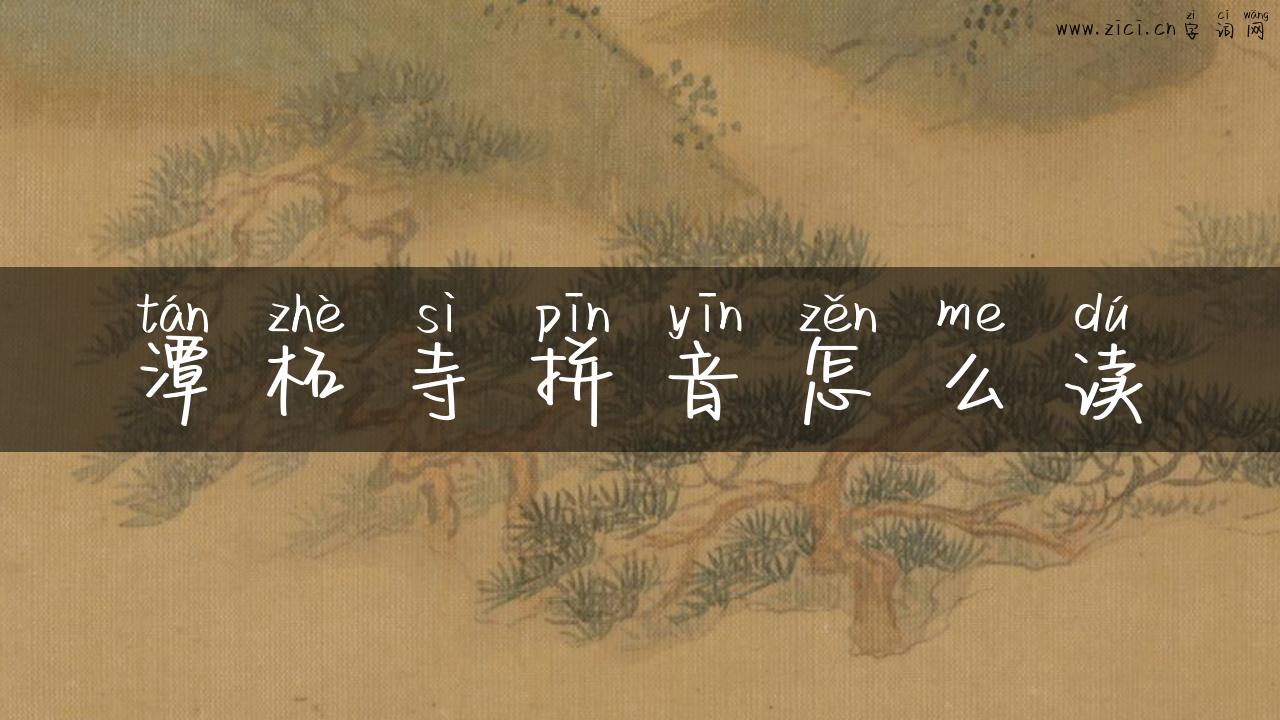 zì cí wǎng
www.zici.cn 字 词 网
tán zhè sì pīn yīn zěn me dú
潭 柘 寺 拼 音 怎 么 读